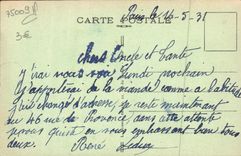 75009
3€
CARTE POSTALE
Paris le 14-5-31
Chers Oncle et Tante
J'irai vous voir Lundi prochain
J'apporterai de la viande comme d'habitude
J'ai changé d'adresse je reste maintenant
au 46 rue de Provence dans cette attente
je vous quitte en vous embrassant bien tous
deux.
René